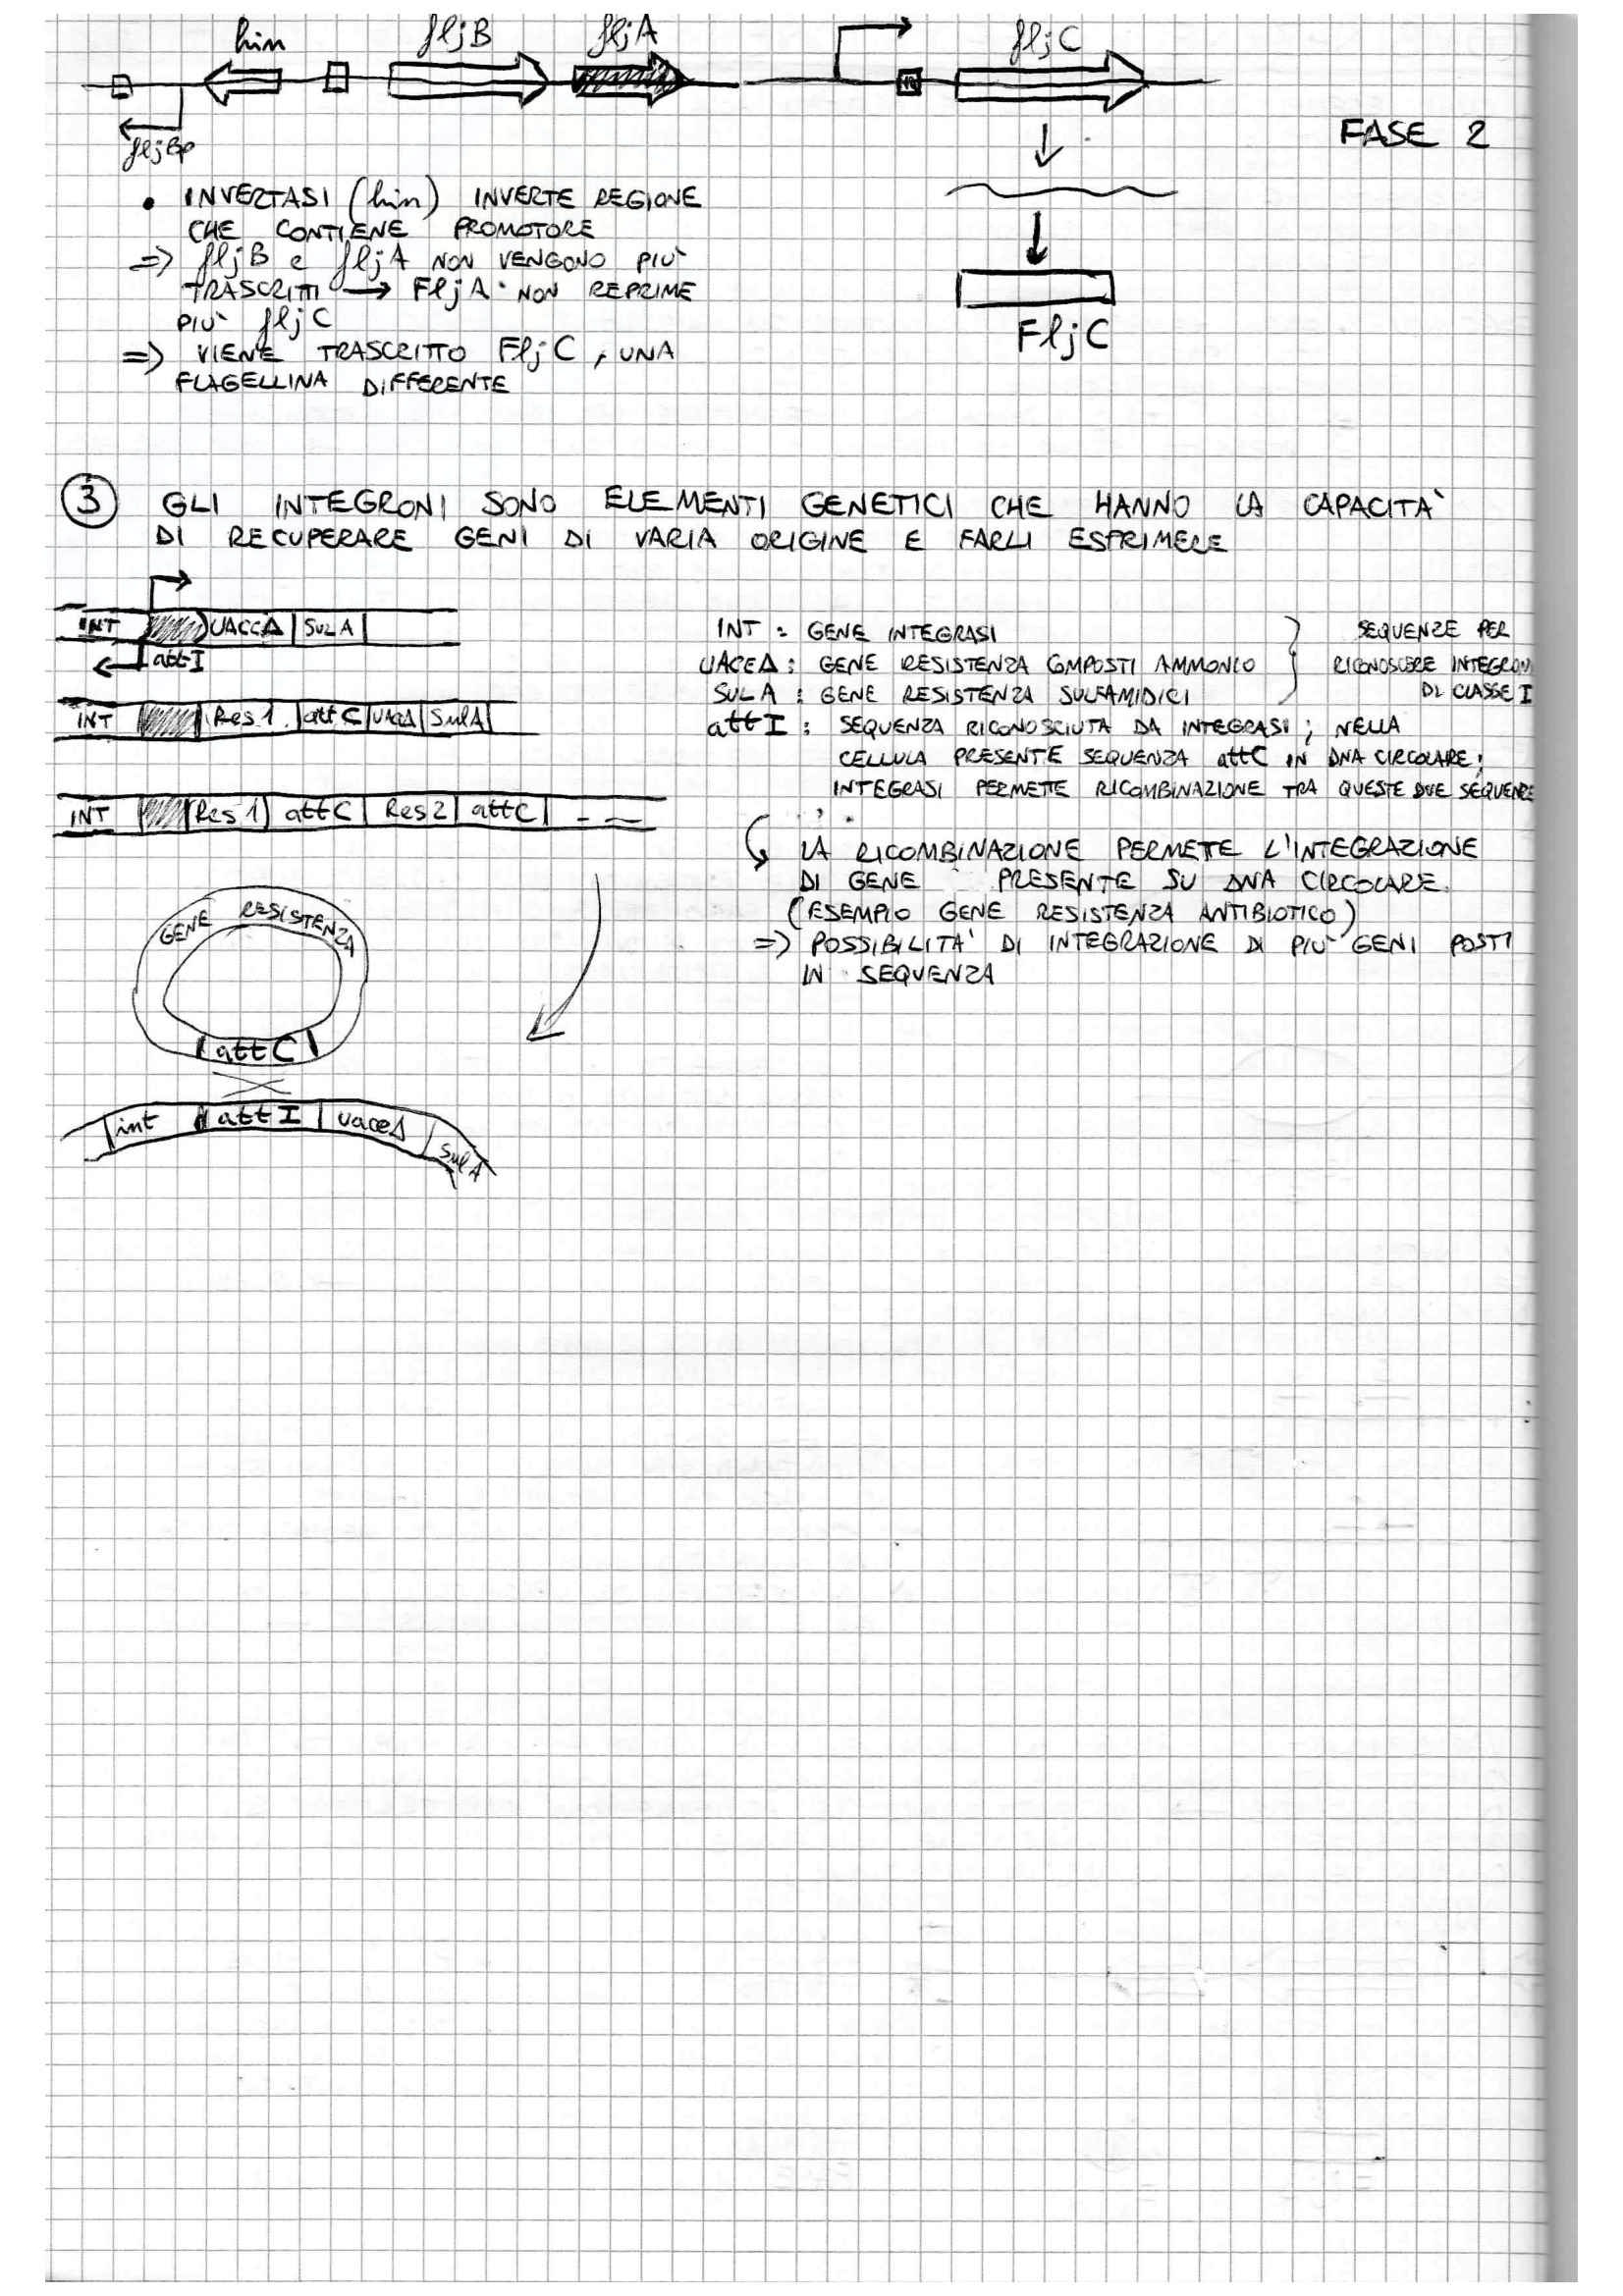 hin fljB fljA fljC
fljBp
FASE 2
• INVERTASI (hin) INVERTE REGIONE
CHE CONTIENE PROMOTORE
=> fljB e fljA NON VENGONO PIÙ
TRASCRITTI → FljA NON REPRIME
PIÙ fljC
=> VIENE TRASCRITTO FljC, UNA
FLAGELLINA DIFFERENTE
FljC
3 GLI INTEGRONI SONO ELEMENTI GENETICI CHE HANNO LA CAPACITÀ
DI RECUPERARE GENI DI VARIA ORIGINE E FARLI ESPRIMERE
INT UACCΔ SULA
attI
INT Res1 attC UACEΔ SulA
INT Res1 attC Res2 attC
GENE RESISTENZA
attC
int attI UaceΔ SulA
INT : GENE INTEGRASI
UACEΔ : GENE RESISTENZA COMPOSTI AMMONIO
SULA : GENE RESISTENZA SULFAMIDICI
SEQUENZE PER
RICONOSCERE INTEGRONI
DI CLASSE I
attI : SEQUENZA RICONOSCIUTA DA INTEGRASI ; NELLA
CELLULA PRESENTE SEQUENZA attC IN DNA CIRCOLARE ;
INTEGRASI PERMETTE RICOMBINAZIONE TRA QUESTE DUE SEQUENZE
LA RICOMBINAZIONE PERMETTE L'INTEGRAZIONE
DI GENE PRESENTE SU DNA CIRCOLARE.
(ESEMPIO GENE RESISTENZA ANTIBIOTICO)
=> POSSIBILITÀ DI INTEGRAZIONE DI PIÙ GENI POSTI
IN SEQUENZA